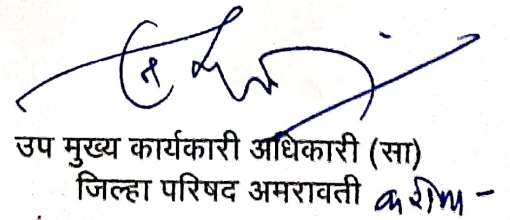 उप मुख्य कार्यकारी अधिकारी (सा)
जिल्हा परिषद अमरावती करीता -